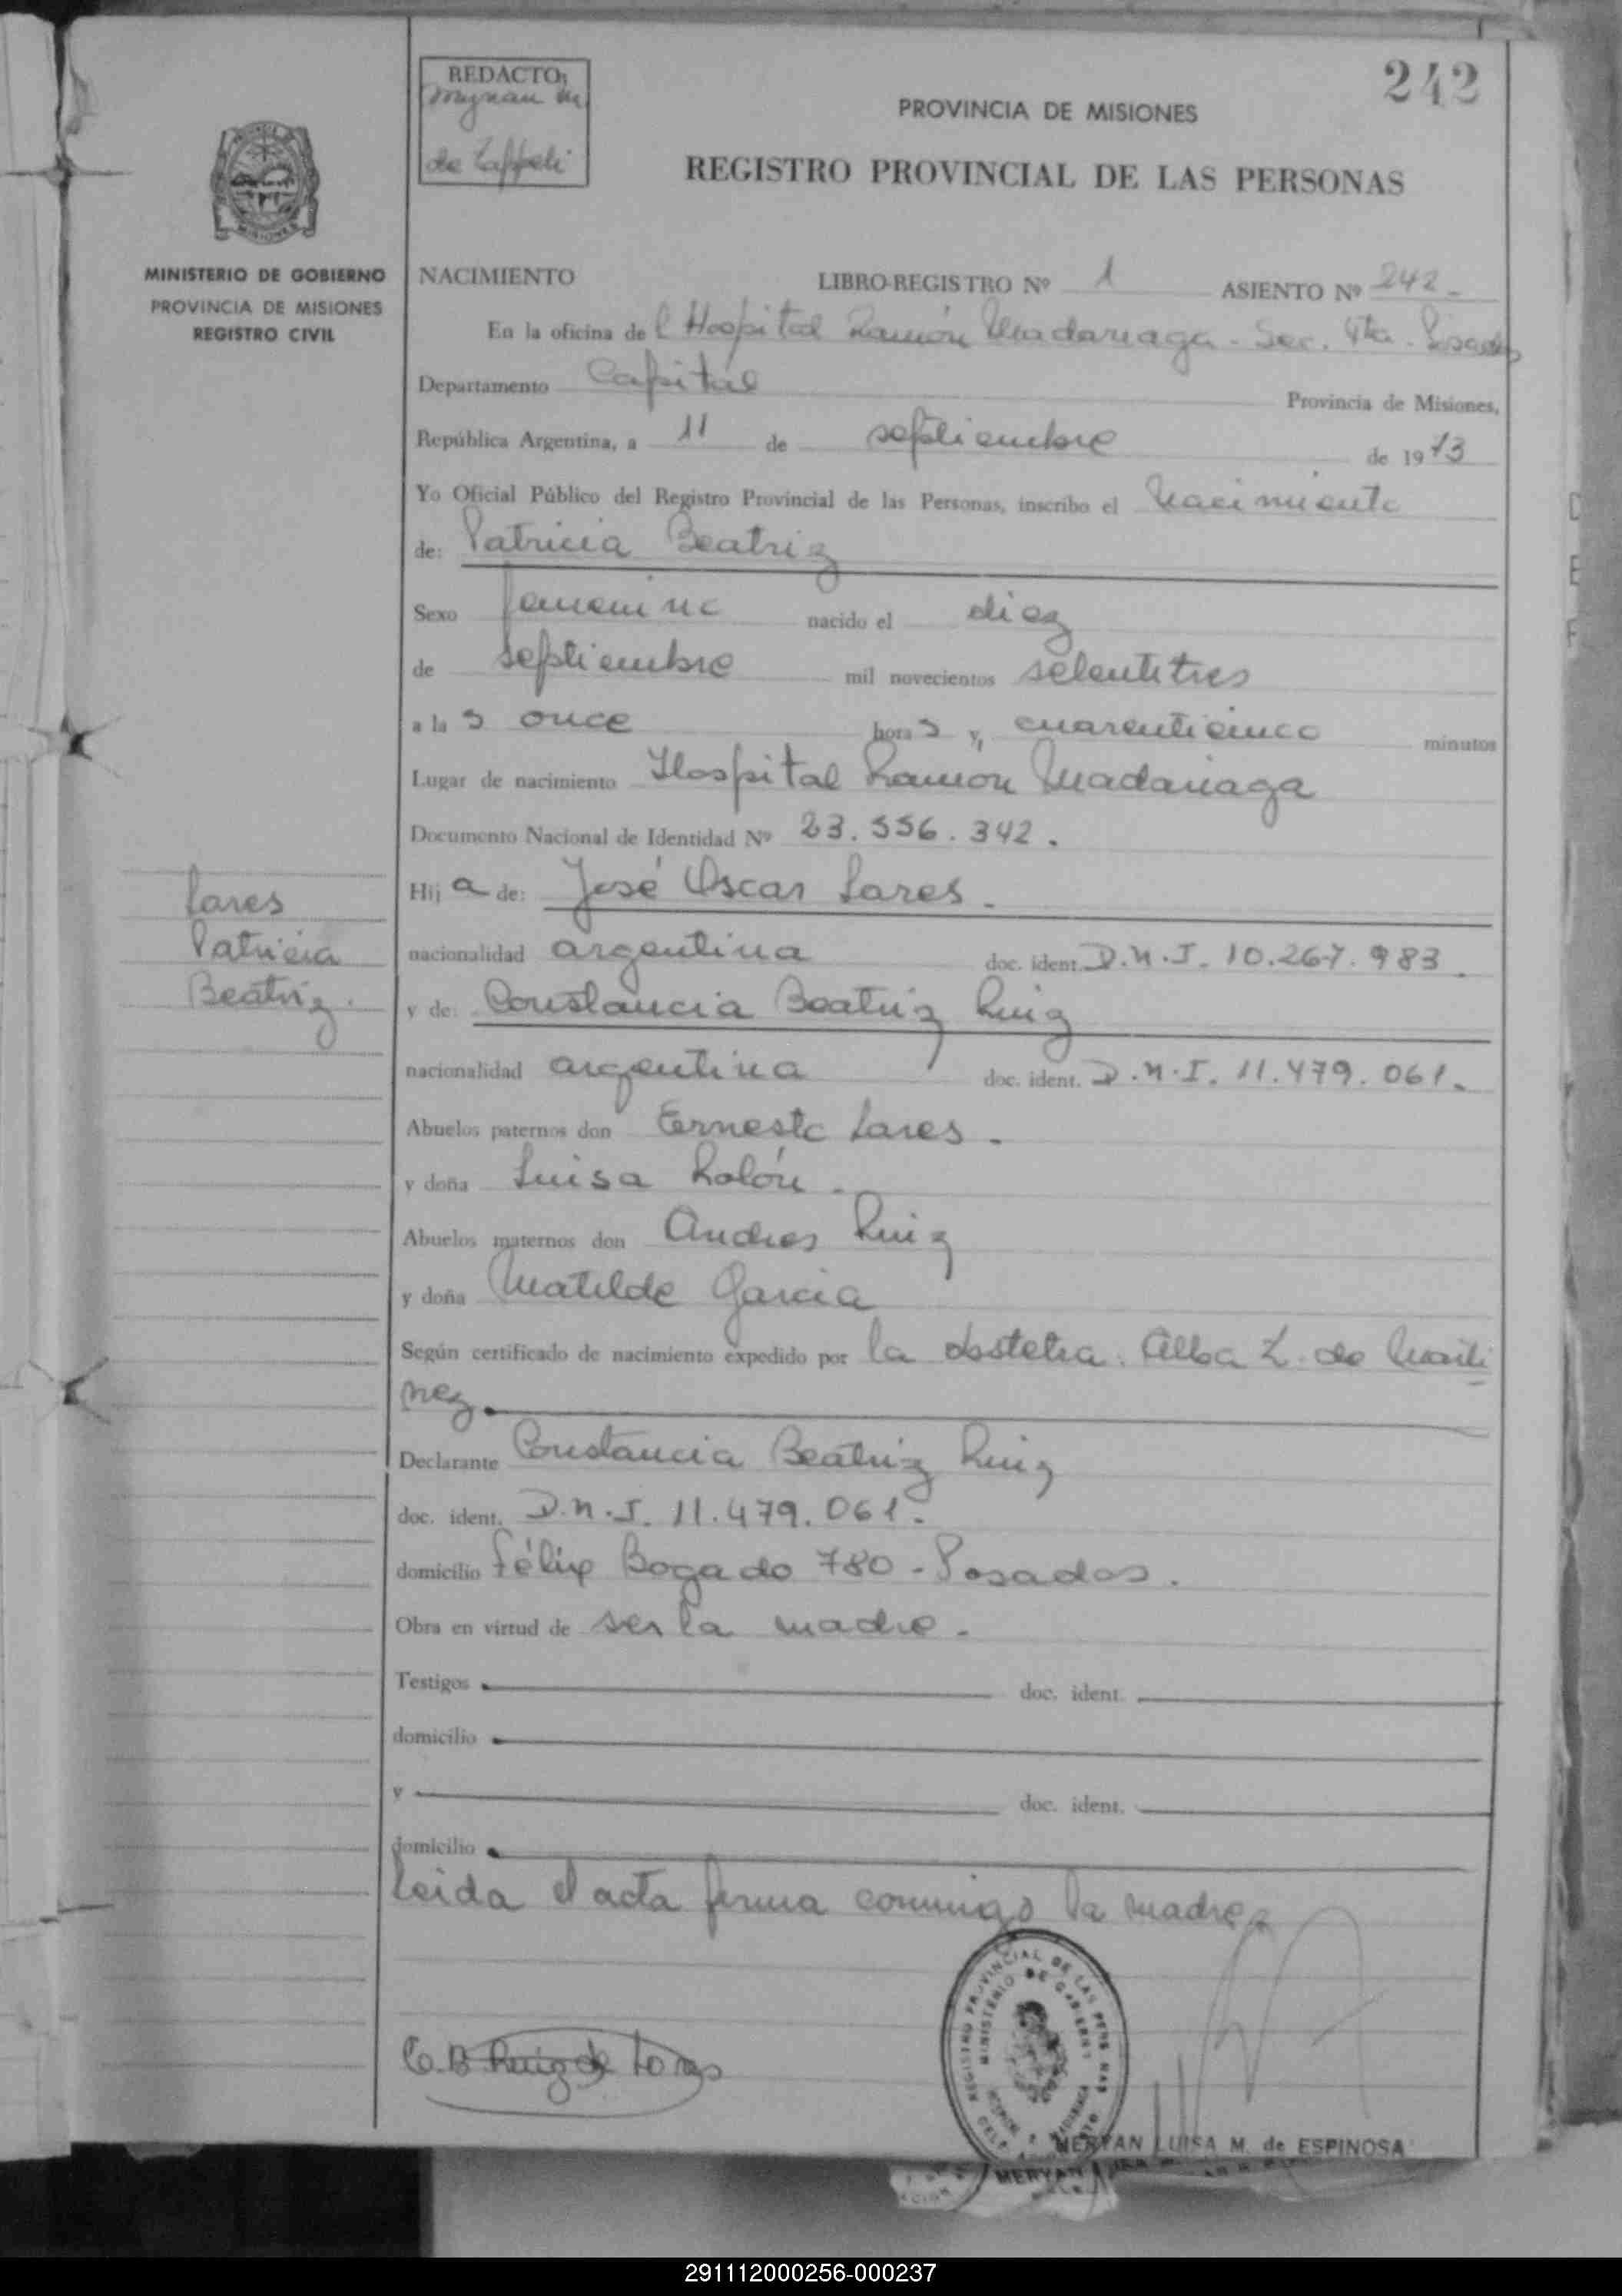 242
REDACTO:
de
PROVINCIA DE MISIONES
REGISTRO PROVINCIAL DE LAS PERSONAS
MINISTERIO DE GOBIERNO
PROVINCIA DE MISIONES
REGISTRO CIVIL
NACIMIENTO LIBRO-REGISTRO Nº 1 ASIENTO Nº 242-
En la oficina del Hospital Ramón Madariaga - Sec. 4ta. Posadas
Departamento Capital Provincia de Misiones,
República Argentina, a 11 de septiembre de 1973
Yo Oficial Público del Registro Provincial de las Personas, inscribo el Nacimiento
de: Patricia Beatriz
Sexo femenino nacido el diez
de septiembre mil novecientos setentitres
a las once horas y, cuarenticinco minutos
Lugar de nacimiento Hospital Ramón Madariaga
Documento Nacional de Identidad Nº 23.556.342.
Hija de: José Oscar Lares -
nacionalidad argentina doc. ident. D.N.I. 10.267.983.
y de: Constancia Beatriz Ruiz
nacionalidad argentina doc. ident. D.N.I. 11.479.061.
Lares
Patricia
Beatriz.
Abuelos paternos don Ernesto Lares -
y doña Luisa Rolón -
Abuelos maternos don Andres Ruiz
y doña Matilde Garcia
Según certificado de nacimiento expedido por la obstetra. Alba L. de Marti
nez
Declarante Constancia Beatriz Ruiz
doc. ident. D.N.I. 11.479.061.
domicilio Félix Bogado 780 - Posadas.
Obra en virtud de ser la madre -
Testigos doc. ident.
domicilio
y doc. ident.
domicilio
Leida el acta firma conmigo la madre
C. B Ruiz de Lares
REGISTRO PROVINCIAL DE LAS PERSONAS
MINISTERIO DE GOBIERNO
MERYAN LUISA M. de ESPINOSA
MERYAN
291112000256-000237